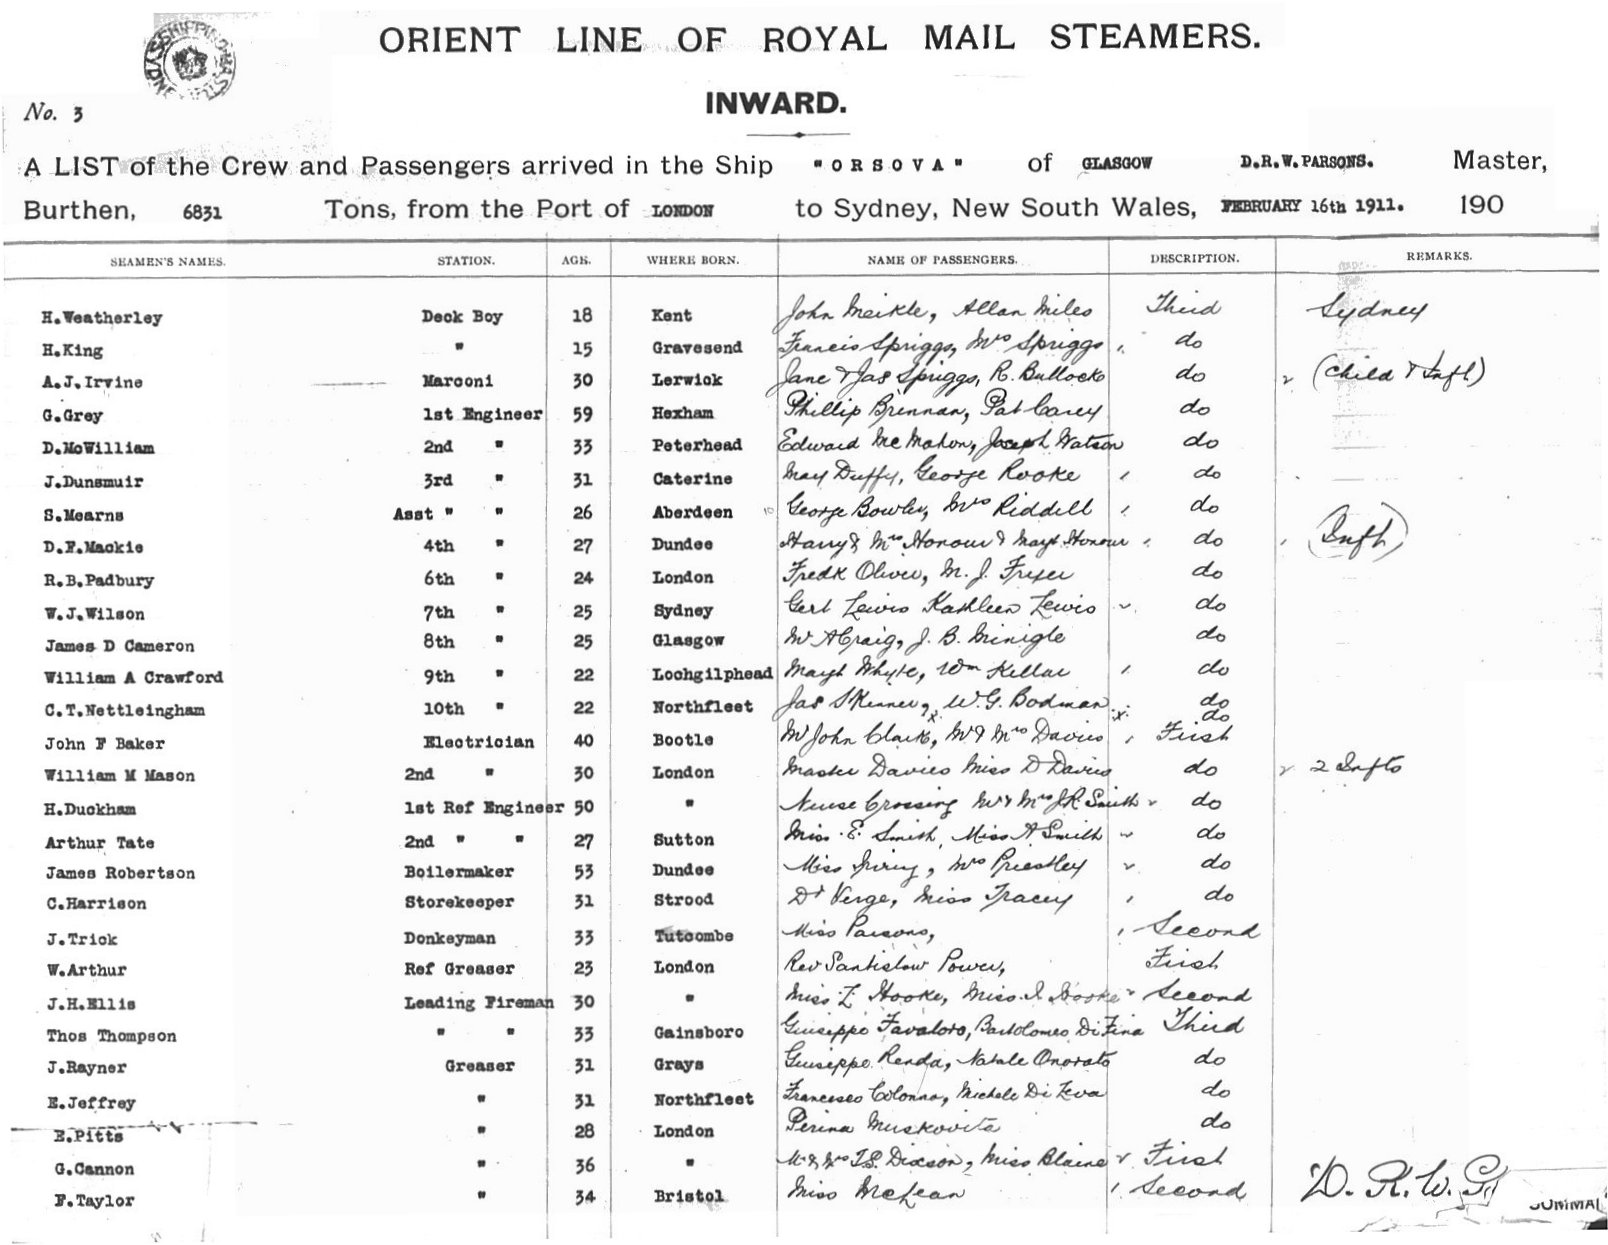 SHIPPING MAST SYDNEY
ORIENT LINE OF ROYAL MAIL STEAMERS.
No. 3
INWARD.
A LIST of the Crew and Passengers arrived in the Ship "ORSOVA" of GLASGOW D.R.W.PARSONS. Master,
Burthen, 6831 Tons, from the Port of LONDON to Sydney, New South Wales, FEBRUARY 16th 1911. 190
SEAMEN'S NAMES. STATION. AGE. WHERE BORN. NAME OF PASSENGERS. DESCRIPTION. REMARKS.
H.Weatherley Deck Boy 18 Kent John Meikle, Allan Miles Third Sydney
H.King " 15 Gravesend Francis Spriggs, Mrs Spriggs do
A.J.Irvine Marconi 30 Lerwick Jane & Jas Spriggs, R. Bullock do (Child & Inft)
G.Grey 1st Engineer 59 Hexham Phillip Brennan, Pat Carey do
D.McWilliam 2nd " 33 Peterhead Edward McMahon, Joseph Watson do
J.Dunsmuir 3rd " 31 Caterine Mary Duffy, George Rooke do
S.Mearns Asst " " 26 Aberdeen George Bowler, Mrs Riddell do
D.F.Mackie 4th " 27 Dundee Harry & Mrs Honour & Mayt Honour do (Inft)
R.B.Padbury 6th " 24 London Fredk Oliver, M. J. Fraser do
W.J.Wilson 7th " 25 Sydney Gert Lewis Kathleen Lewis do
James D Cameron 8th " 25 Glasgow Mr A Craig, J. B. Minigle do
William A Crawford 9th " 22 Lochgilphead Mayt Whyte, Wm Kellar do
C.T.Nettleingham 10th " 22 Northfleet Jas Skinner, W.G. Bodman do
do
John F Baker Electrician 40 Bootle Mr John Clark, Mr & Mrs Davies First
William M Mason 2nd " 30 London Master Davies Miss D Davies do 2 Infts
H.Duckham 1st Ref Engineer 50 " Nurse Crossing Mr & Mrs J.R. Smith do
Arthur Tate 2nd " " 27 Sutton Miss E. Smith, Miss A Smith do
James Robertson Boilermaker 53 Dundee Miss Mrs Priestley do
C.Harrison Storekeeper 31 Strood Dr Verge, Miss Tracey do
J.Trick Donkeyman 33 Tutcombe Miss Parsons, Second
W.Arthur Ref Greaser 23 London Rev Power, First
J.H.Ellis Leading Fireman 30 " Miss Z Hooke, Miss I Hooke Second
Thos Thompson " " 33 Gainsboro Giuseppe Favaloro, Bartolomeo Di Fina Third
J.Rayner Greaser 31 Grays Giuseppe Renda, Natale Onorato do
E.Jeffrey " 31 Northfleet Francesco Colonna, Michele Di Leva do
E.Pitts " 28 London Perina Muskovita do
G.Cannon " 36 " Mr & Mrs T.S. Dixson, Miss Blaine First
F.Taylor " 34 Bristol Miss McLean Second D. R. W. P
SUMMA